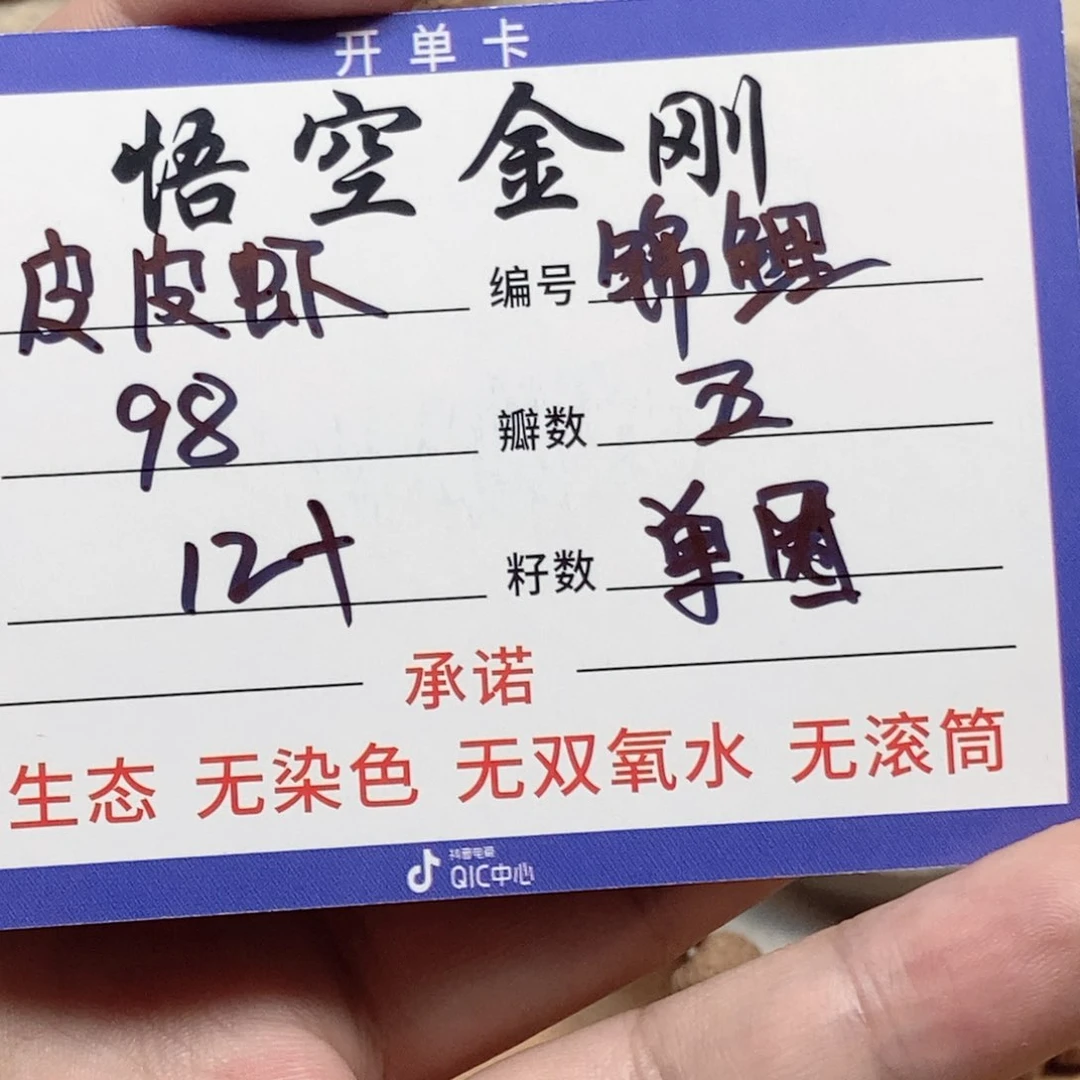 开单卡
悟空金刚
皮皮虾 编号 锦鲤
98 瓣数 五
12+ 籽数 单圈
承诺
生态 无染色 无双氧水 无滚筒
抖音电商
QIC中心